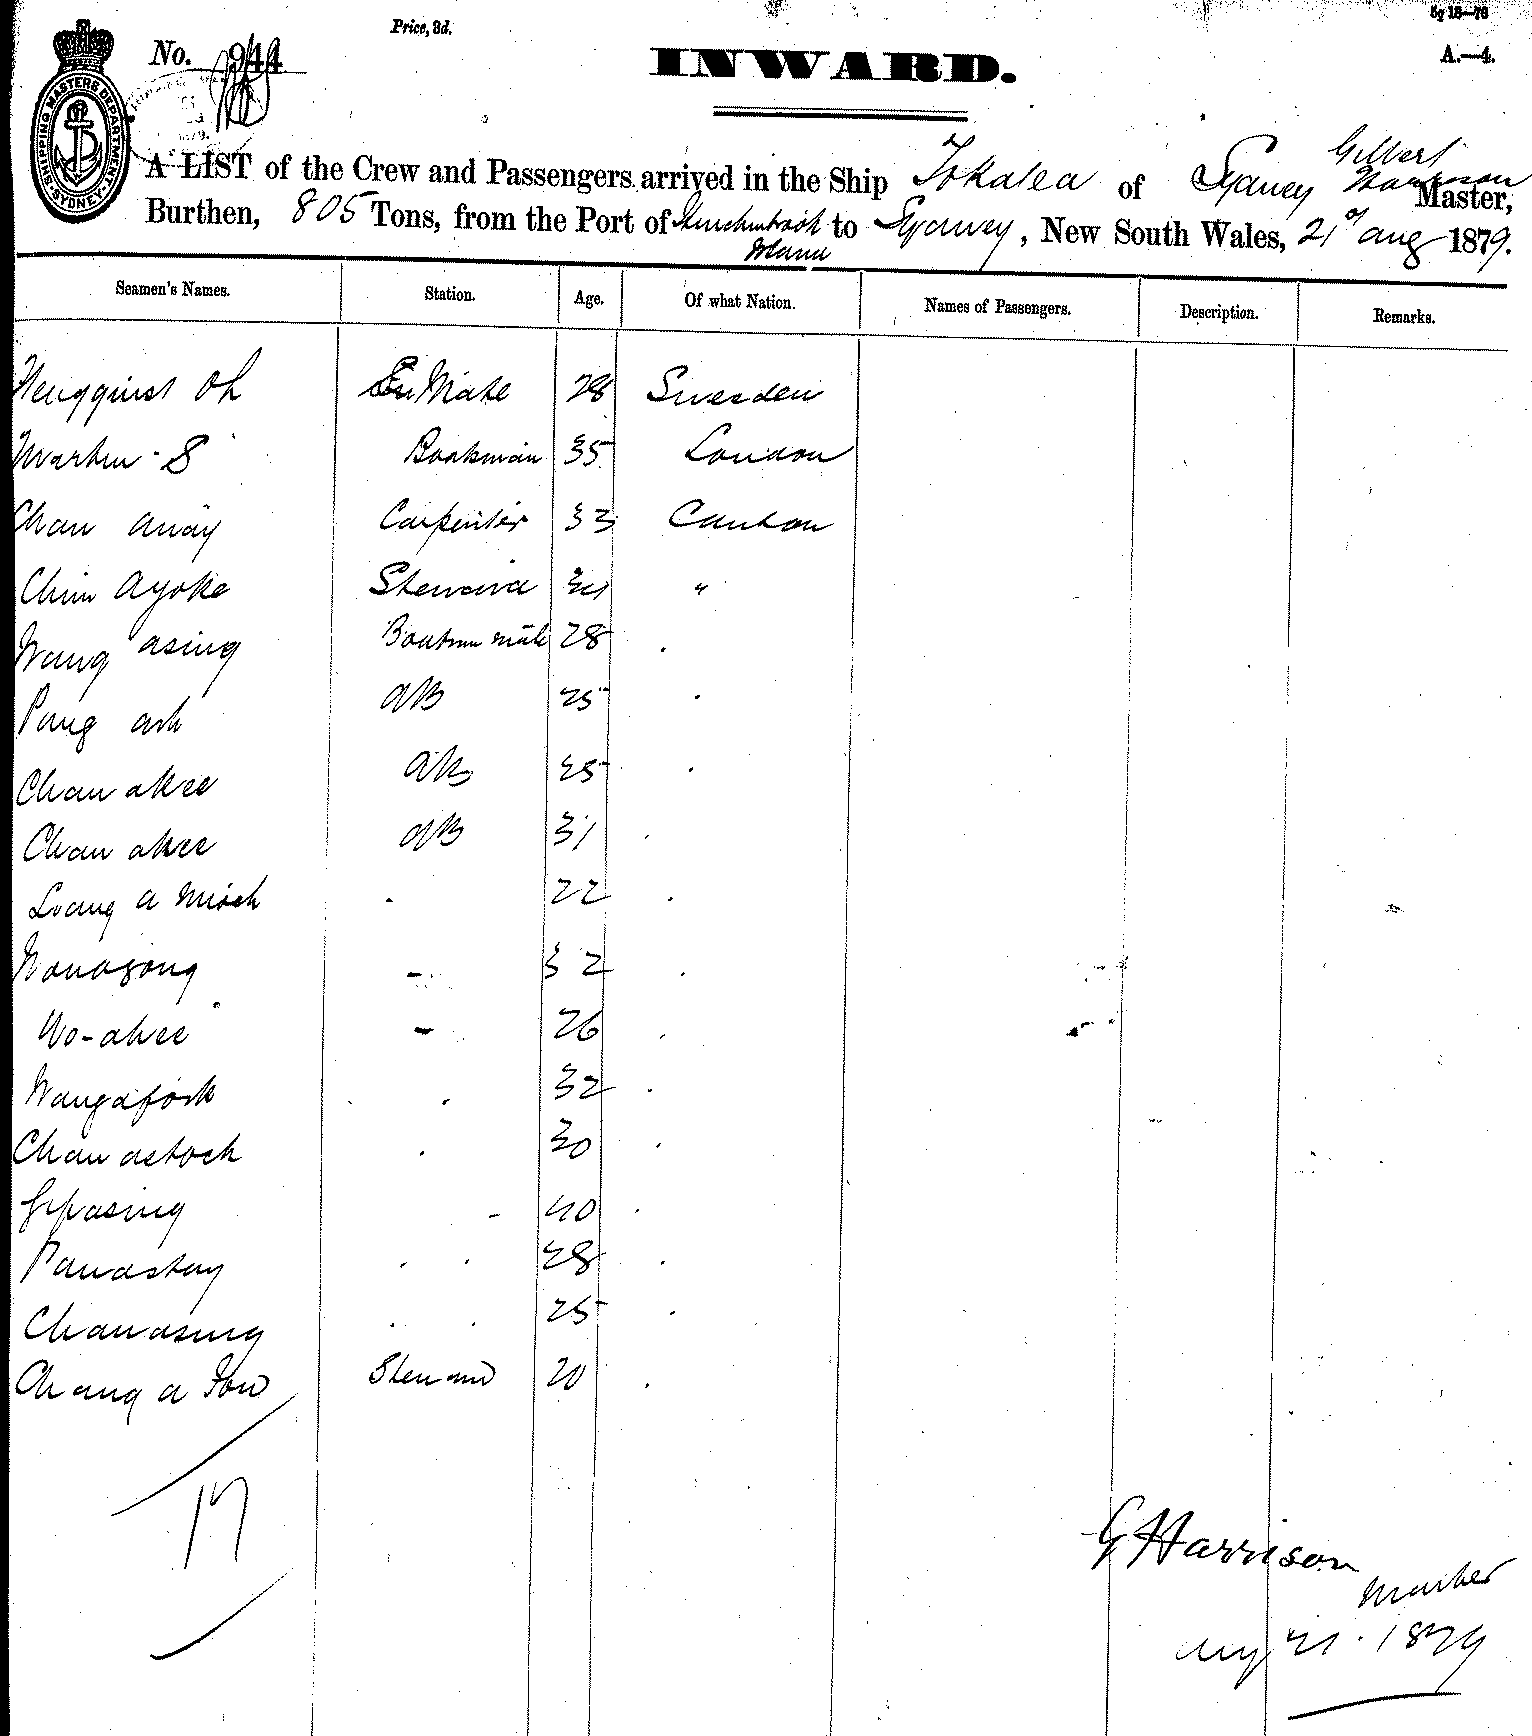 Price, 3d.
5g 18—78
No. 944
INWARD.
A.—4.
SHIPPING MASTERS DEPARTMENT SYDNEY
Gilbert
A LIST of the Crew and Passengers arrived in the Ship Tokatea of Sydney Harrison Master,
Burthen, 805 Tons, from the Port of to Sydney, New South Wales, 21st Aug 1879.
Island
Seamen's Names. Station. Age. Of what Nation. Names of Passengers. Description. Remarks.
Mate 28 Sweden
Martin S Boatsman 35 London
Chan Auay Carpenter 33 Canton
Chim Ayoke Steward 34 "
Wang asing Boatswn mate 28
Pang ash AB 25
Chan akee AB 25
Chan akee AB 31
Loang a 22
32
Wo-akee 26
Wangafook 32
Chan astock 30
40
Panastay 28
Chanasing 25
Chang a Fow Steward 20
17
G Harrison
Master
Aug 21. 1879